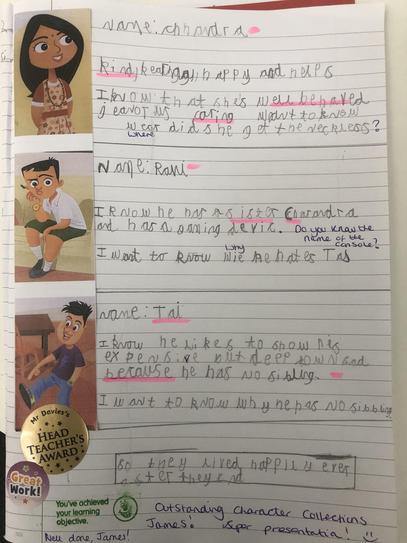 name: chhandra
kind, happy and helps
I know that she's well behaved
caring want to know
where
did she get the neckless?
Name: Ravi
I know he has a sister Chhandra
and has a gaming device. Do you know the
name of the
console?
why
I want to know wie he hates Tas
name: Tai
I know he likes to show his
expensive but deep down sad
because he has no sibling.
I want to know why he has no sibbling
so they lived happily ever
after they end
Mr Davies's
HEAD
TEACHER'S
AWARD
Great
Work!
You've achieved
your learning
objective.
Outstanding Character Collections
James! Super presentation!
Well done, James!